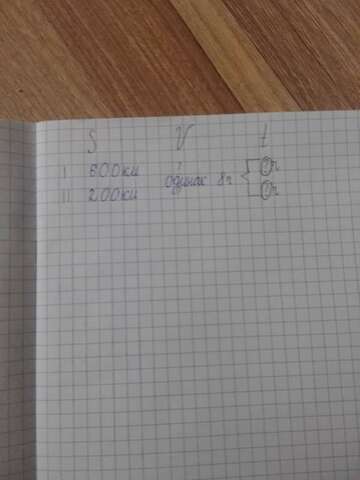 S V t
I 600км ? ?ч
II 200км одинак 8ч ?ч